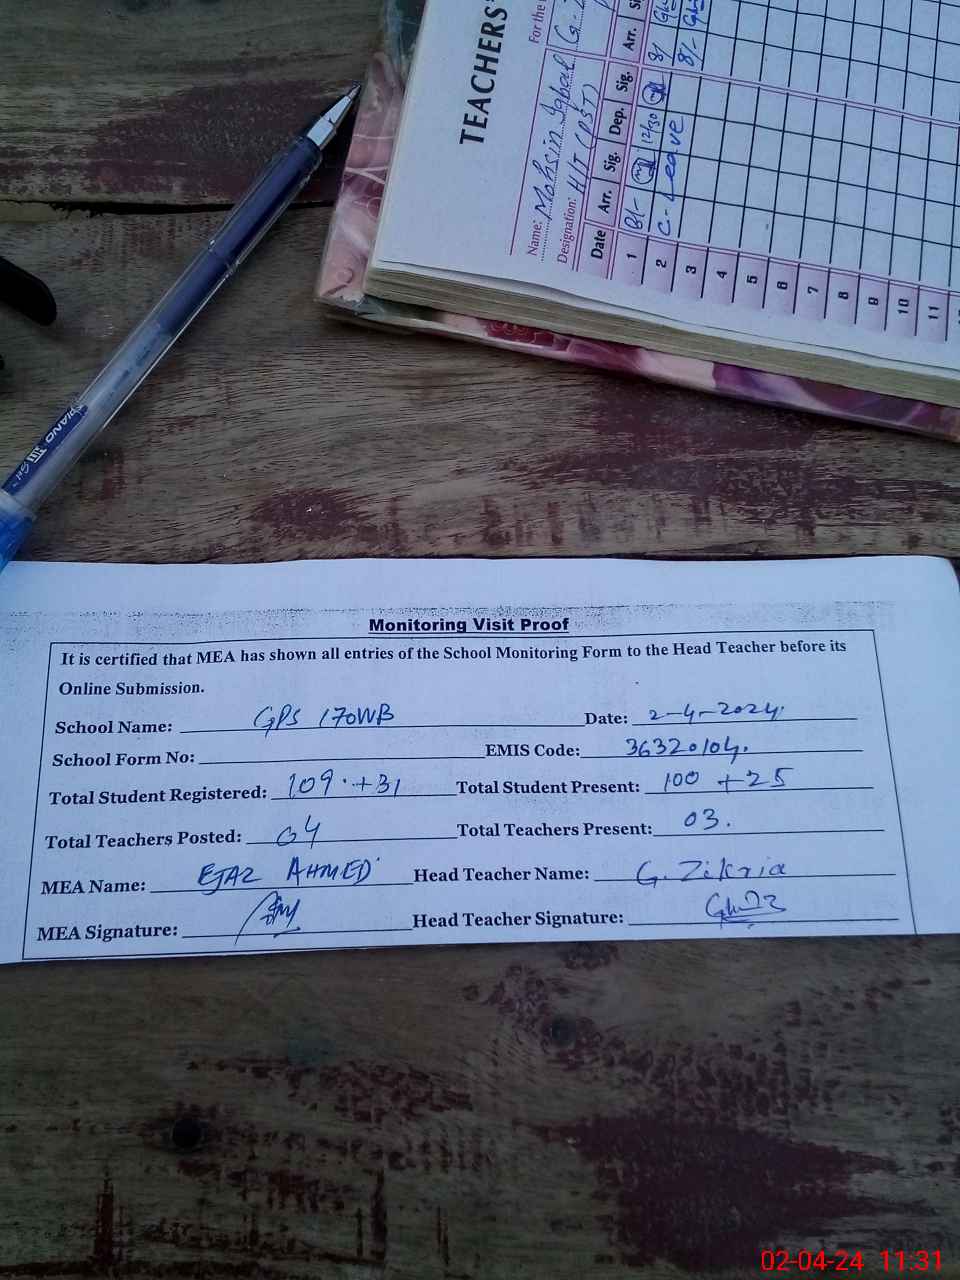 TEACHERS'
For the
Name: Mohsin Iqbal
Designation: H/T (PST)
Date Arr. Sig. Dep. Sig. Arr.
1 8/- 12/30 8/
2 C-Leave 8/-
3
4
5
6
7
8
9
10
11
PIANO
Gel
Monitoring Visit Proof
It is certified that MEA has shown all entries of the School Monitoring Form to the Head Teacher before its
Online Submission.
School Name: GPS 170WB Date: 2-4-2024.
School Form No: EMIS Code: 36320104.
Total Student Registered: 109.+31 Total Student Present: 100 + 25
Total Teachers Posted: 04 Total Teachers Present: 03.
MEA Name: EJAZ AHMED Head Teacher Name: G. Zikria
MEA Signature: Head Teacher Signature:
02-04-24 11:31